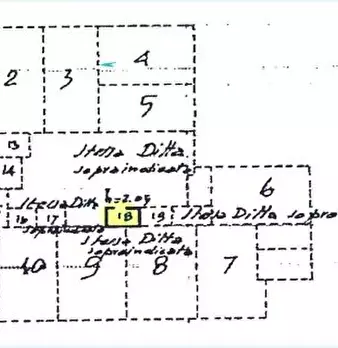 4
2 3
5
13
Stessa Ditta
14
sopraindicata
6
h=2.09
Stessa Ditta
16 17 18 19 Stessa Ditta sopra
sopraindicata
Stessa Ditta
sopraindicata
10 9 8 7